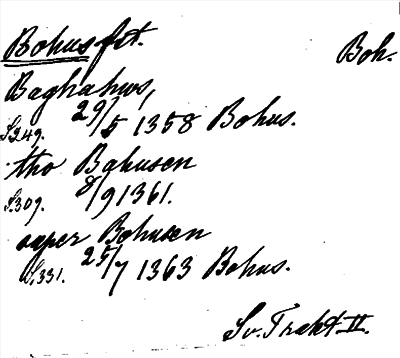 Bohus fst. Boh.
Baghahws,
S.249. 29/5 1358 Bohus.
tho Bahusen
S.309. 8/9 1361.
oper Bohusen
S.331. 25/7 1363 Bohus.
Sv. Trakt II.